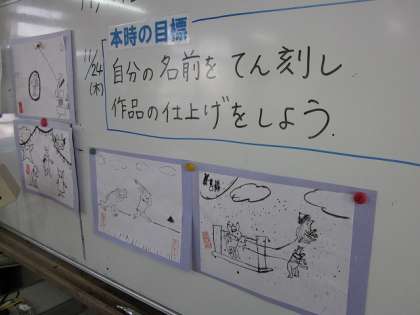 本時の目標
11/24
(木)
自分の名前を てん刻し
作品の仕上げをしよう.